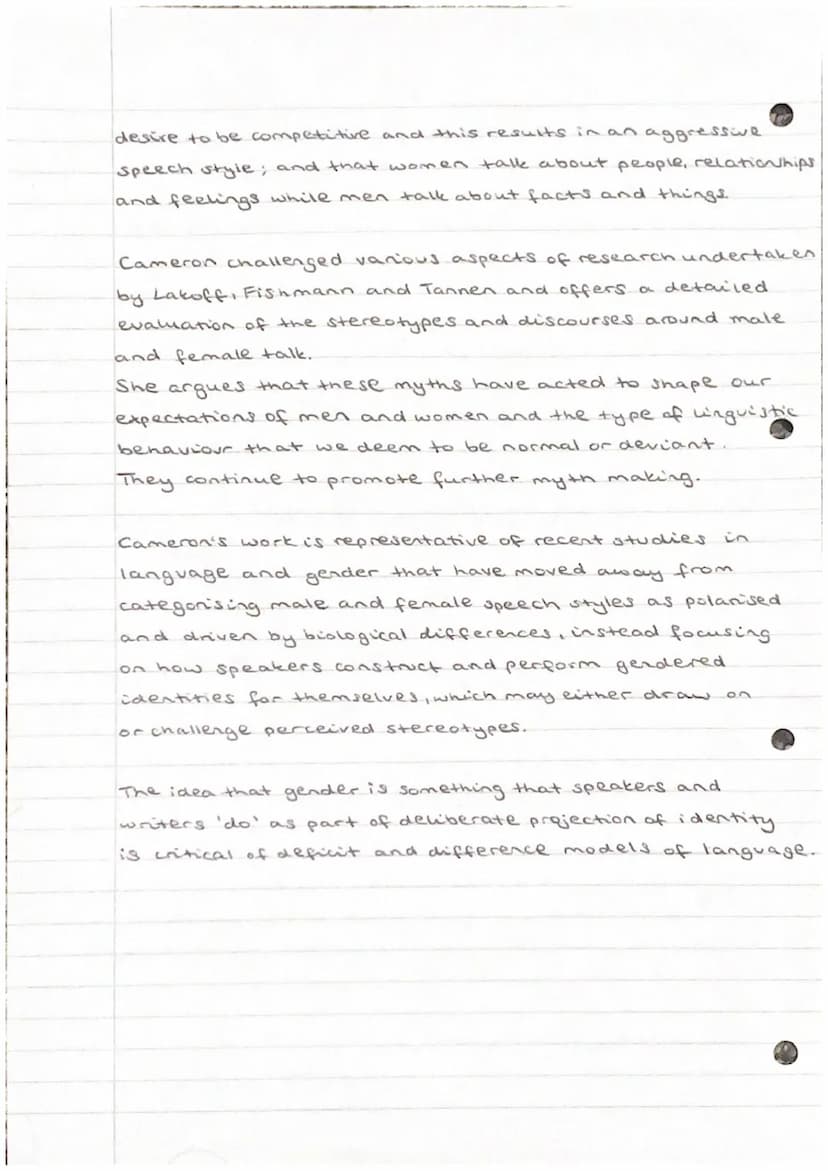 desire to be competitive and this results in an aggressive
speech style; and that women talk about people, relationships
and feelings while men talk about facts and things
Cameron challenged various aspects of research undertaken
by Lakoff, Fishmann and Tannen and offers a detailed
evaluation of the stereotypes and discourses around male
and female talk.
She argues that these myths have acted to shape our
expectations of men and women and the type of linguistic
behaviour that we deem to be normal or deviant.
They continue to promote further myth making.
Cameron's work is representative of recent studies in
language and gender that have moved away from
categorising male and female speech styles as polarised
and driven by biological differences, instead focusing
on how speakers construct and perform gendered
identities for themselves, which may either draw on
or challenge perceived stereotypes.
The idea that gender is something that speakers and
writers 'do' as part of deliberate projection of identity
is critical of deficit and difference models of language.